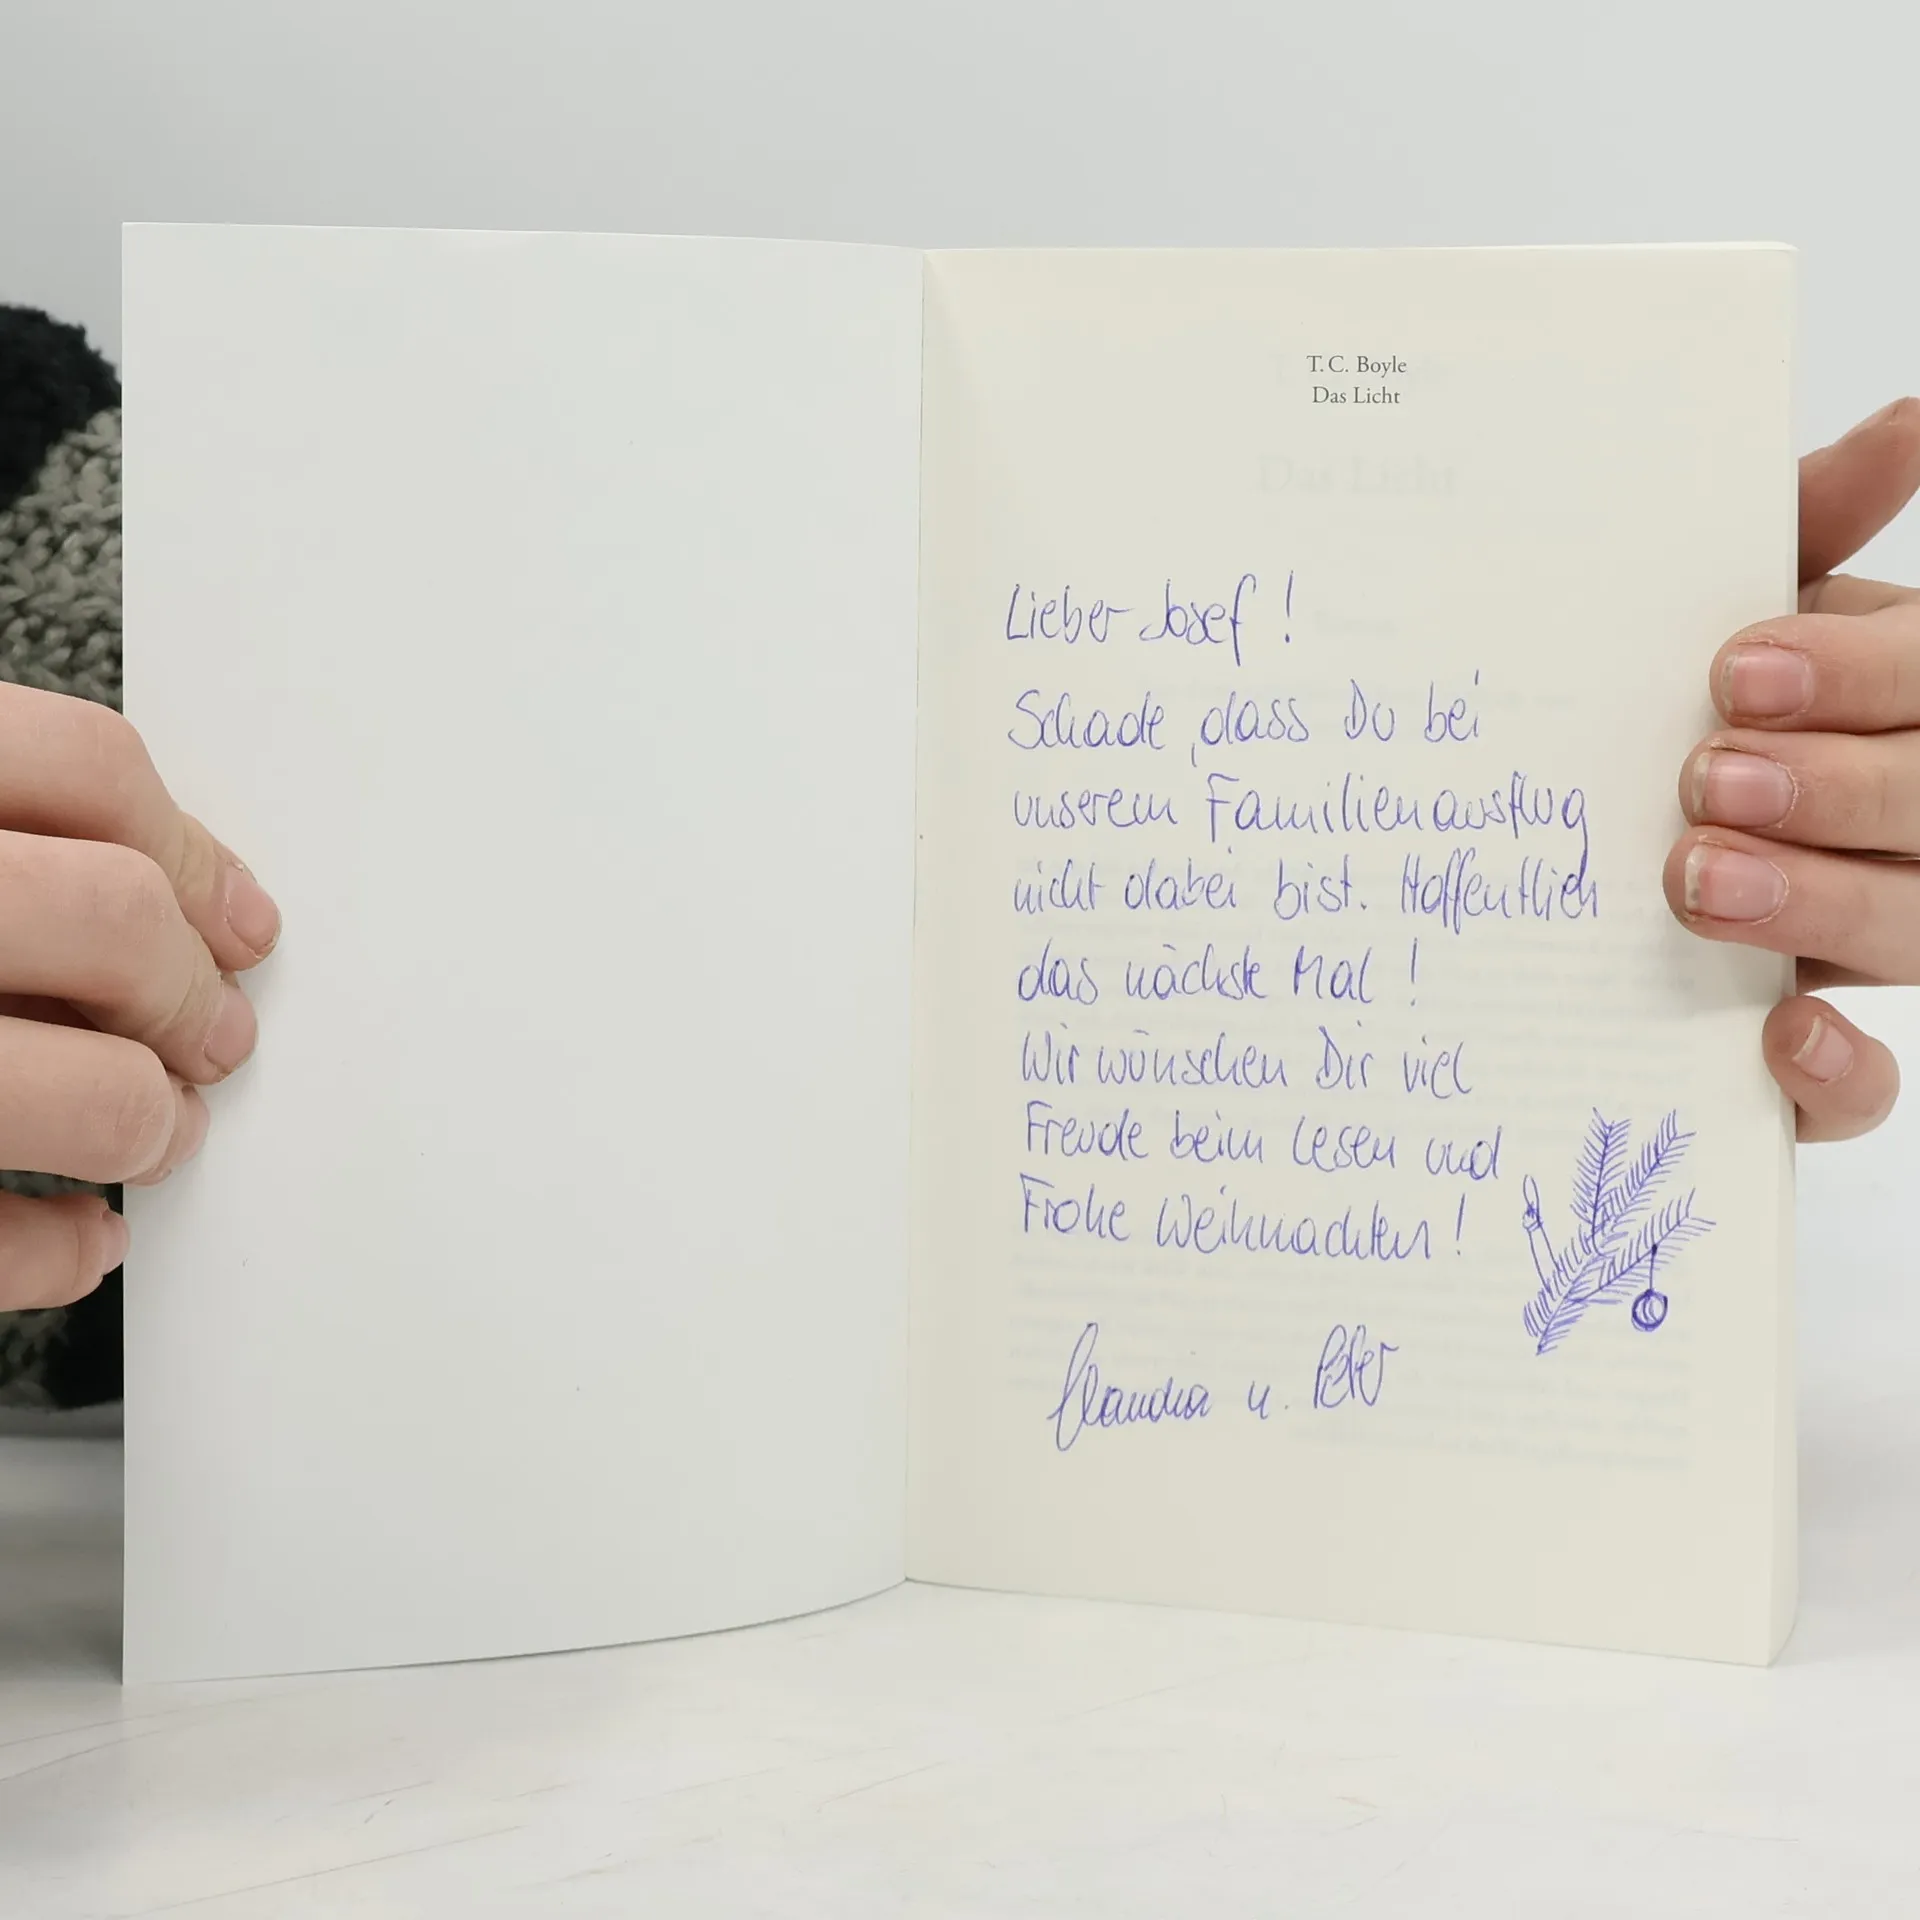 T. C. Boyle
Das Licht
Lieber Josef !
Schade, dass Du bei
unserem Familienausflug
nicht dabei bist. Hoffentlich
das nächste Mal !
Wir wünschen Dir viel
Freude beim Lesen und
Frohe Weihnachten !
Claudia u. Peter